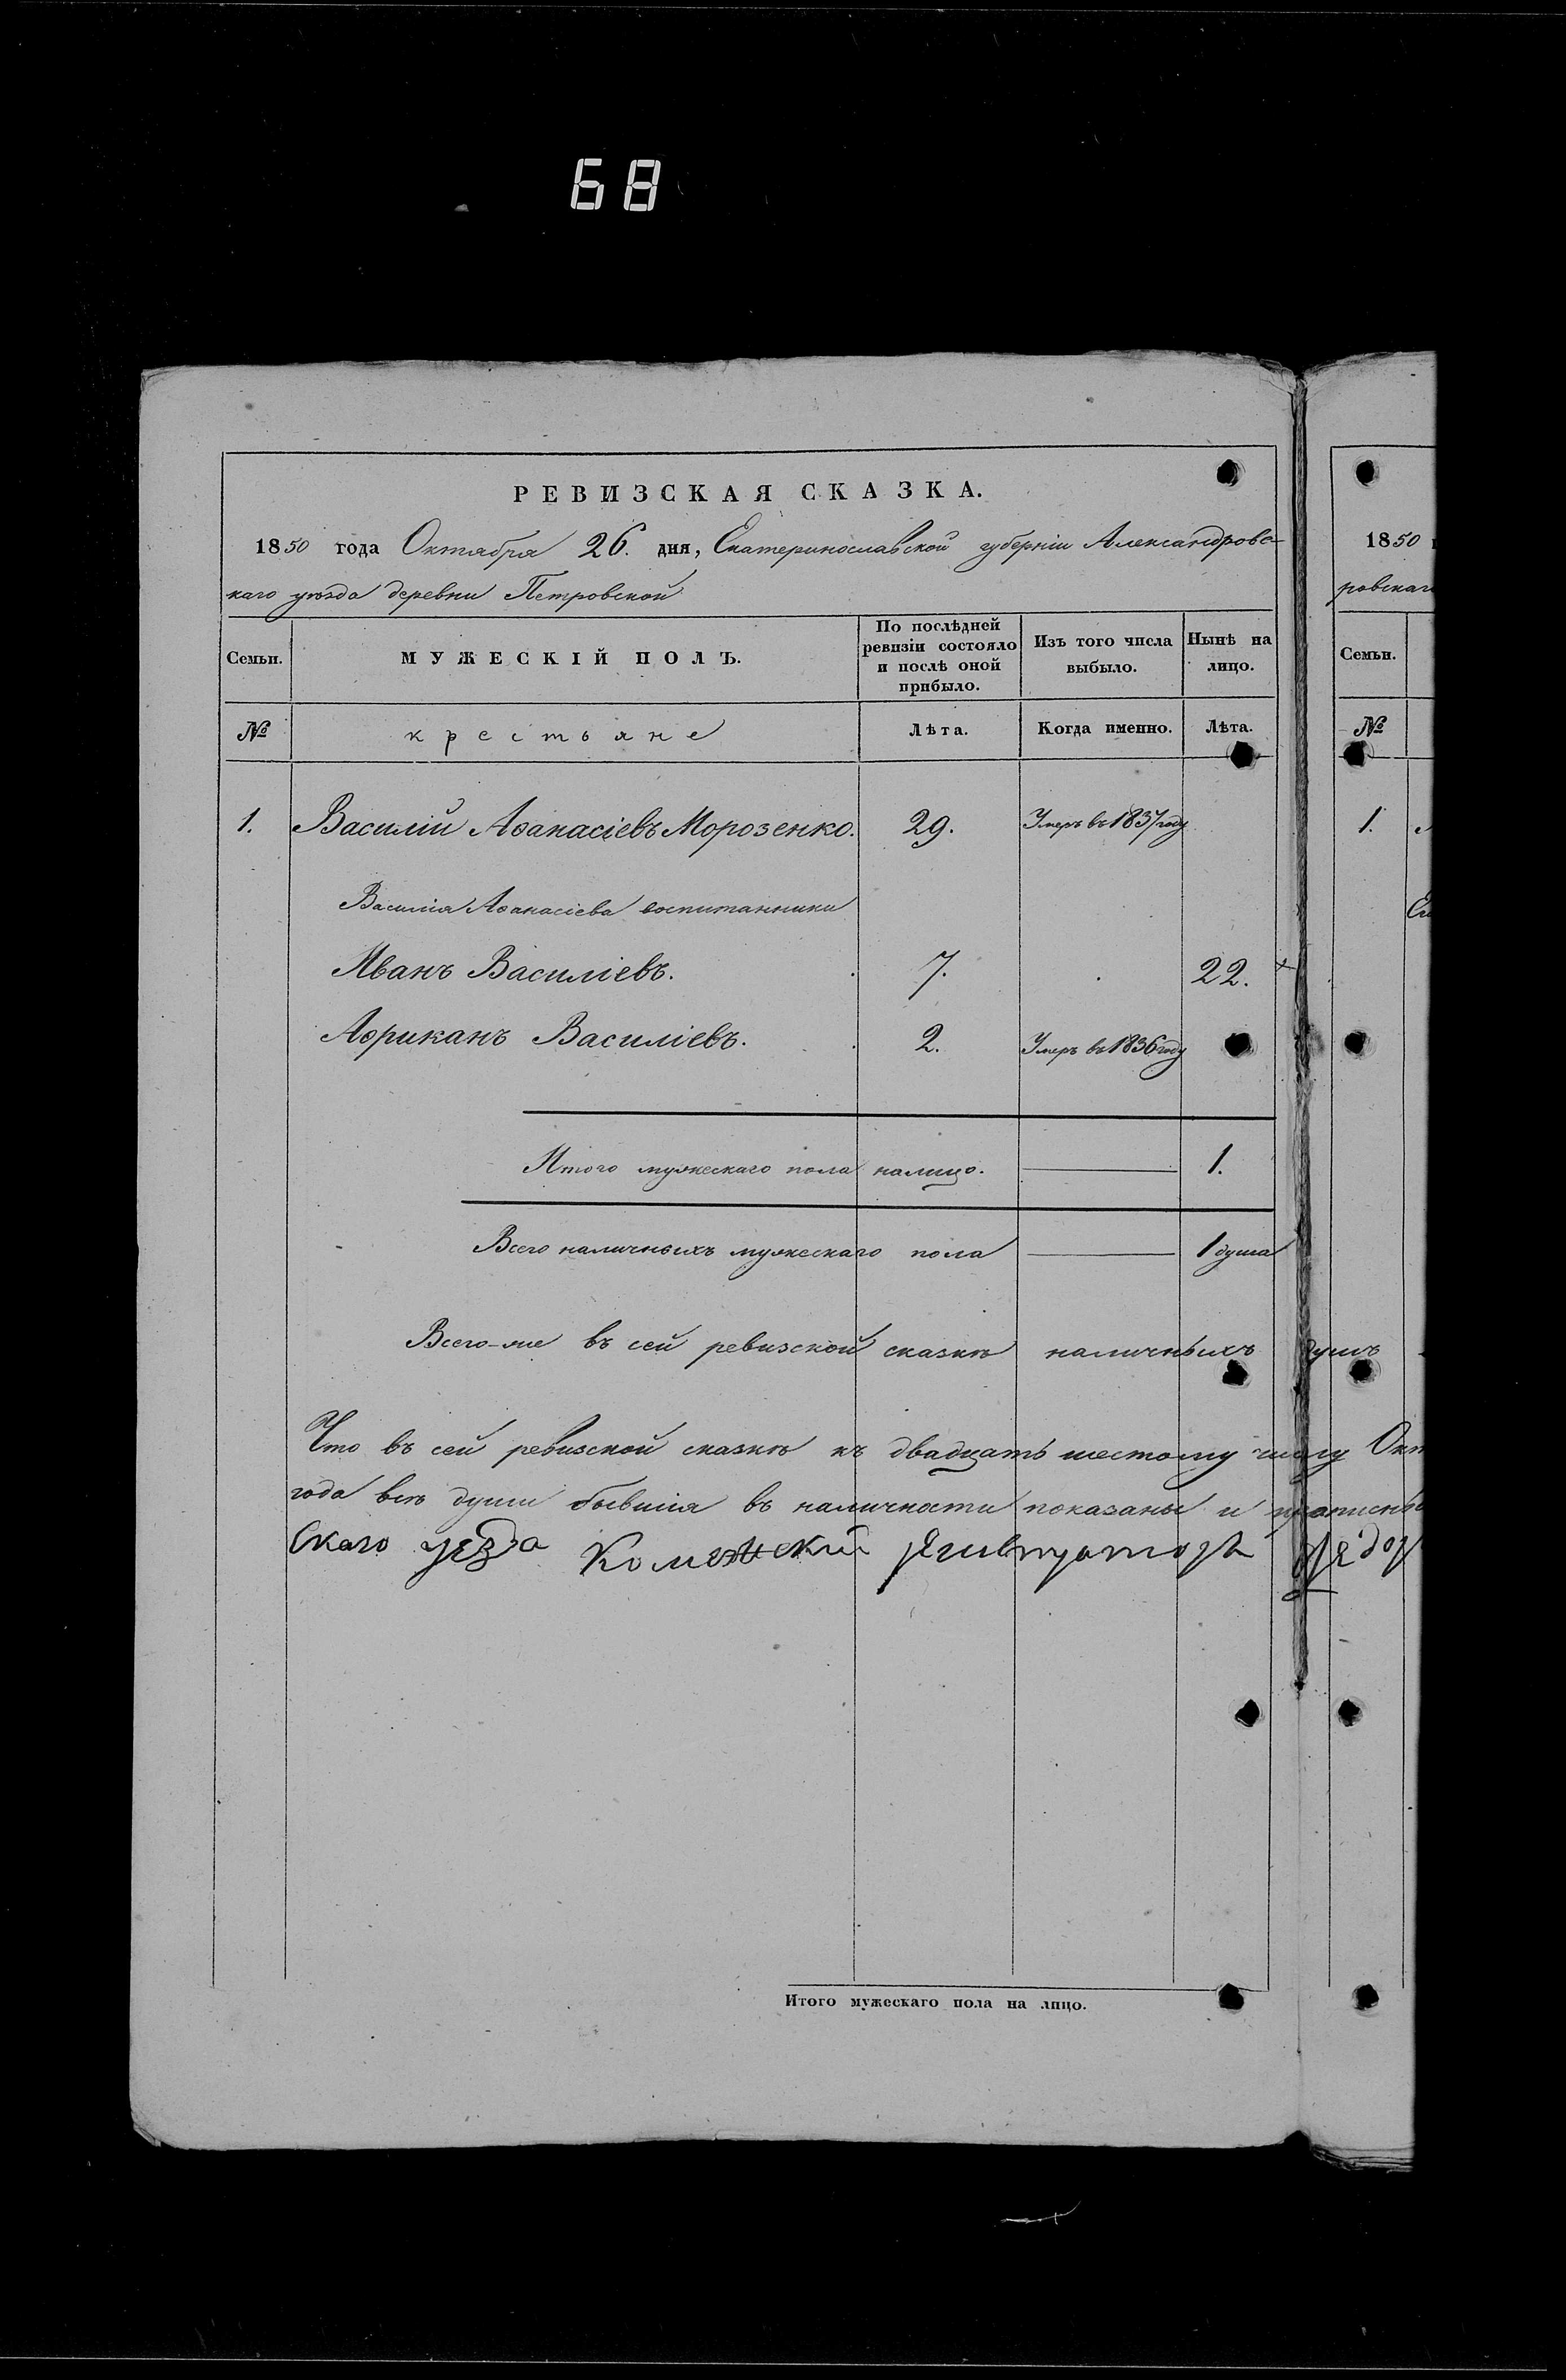 68
РЕВИЗСКАЯ СКАЗКА.
1850 года Октября 26. дня, Екатеринославской губерніи Александровс-
каго уѣзда деревни Петровской
Семьи. МУЖЕСКІЙ ПОЛЪ. По послѣдней ревизіи состояло и послѣ оной прибыло. Изъ того числа выбыло. Нынѣ на лицо.
№ крестьяне Лѣта. Когда именно. Лѣта.
1. Василій Аѳанасіевъ Морозенко. 29. Умеръ въ 1837 году
Василія Аѳанасіева воспитанники
Иванъ Василіевъ. 7. 22.
Африканъ Василіевъ. 2. Умеръ въ 1836 году
Итого мужескаго пола налицо. 1.
Всего наличныхъ мужескаго пола 1 душа
Всего-же въ сей ревизской сказкѣ наличныхъ душъ
Что въ сей ревизской сказкѣ къ двадцать шестому числу Окт
года всѣ души бывшія въ наличности показаны и
скаго уезда
Итого мужескаго пола на лицо.
1850
ровскаго
Семьи.
№
1.